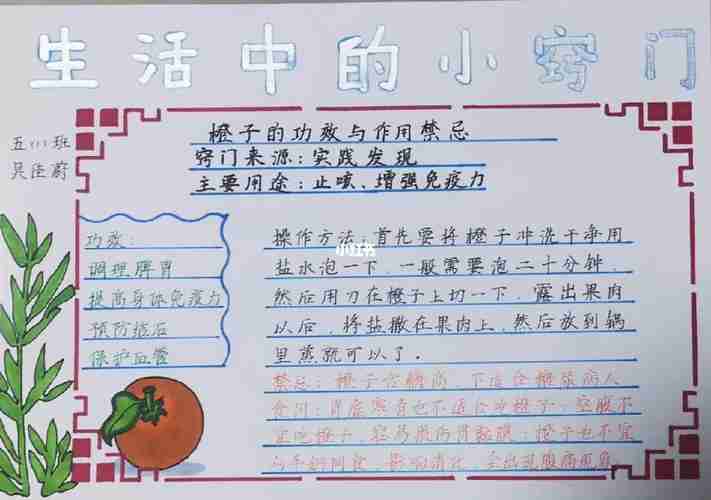 生活中的小窍门
五(1)班
橙子的功效与作用禁忌
窍门来源:实践发现
主要用途:止咳、增强免疫力
功效:
调理脾胃
提高身体免疫力
预防结石
保护血管
操作方法:首先要将橙子冲洗干净用
小红书
盐水泡一下,一般需要泡二十分钟,
然后用刀在橙子上切一下,露出果肉
以后,将盐撒在果肉上,然后放到锅
里蒸就可以了.
禁忌:橙子含糖高,不适合糖尿病人
食用;胃底寒者也不适合吃橙子;空腹不
宜吃橙子,容易 胃 酸;橙子也不宜
与牛奶同食,影响消化,会出现腹